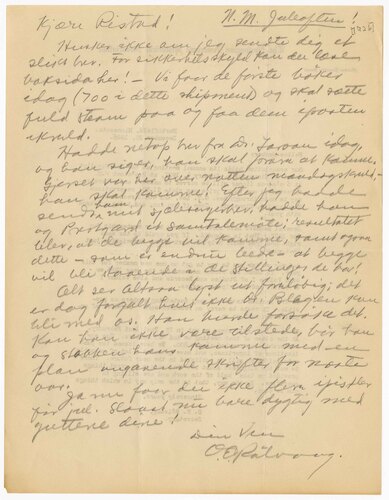 Kjære Ristad! N. M. Juleaften!
Husker ikke om jeg sendte dig et
slikt brev. For sikkerhets skyld kan du læse
baksida her! – Vi faar de første bøker
idag (700 i dette shipment) og skal sætte
fuld steam paa og faa dem i posten
i kveld.
Hadde netop brev fra Dr. idag,
og han siger, han skal prøve at komme.
Gjerset var her over natten mandagskveld –
han skal komme! Efter jeg hadde
sendt ham mit brev, hadde han
og Prestgard et samtalemøte; resultatet
blev, at de begge vil komme, samt ogsaa
dette – som er endnu bedre – at begge
vil bli staaende i de stillinger de har!
Alt ser altsaa lyst ut foreløbig; det
er dog forgjæves hvis ikke Dr. Blegen kan
bli med os. Han burde forsøke det.
Kan han ikke være tilstede, bør han
og komme med en
plan angaaende skrifter for næste
aar.
Ja nu faar du ikke flere epistler
før jul. Slaass nu bare dygtig med
guttene dine!
Din Ven
O. E. Rølvaag.